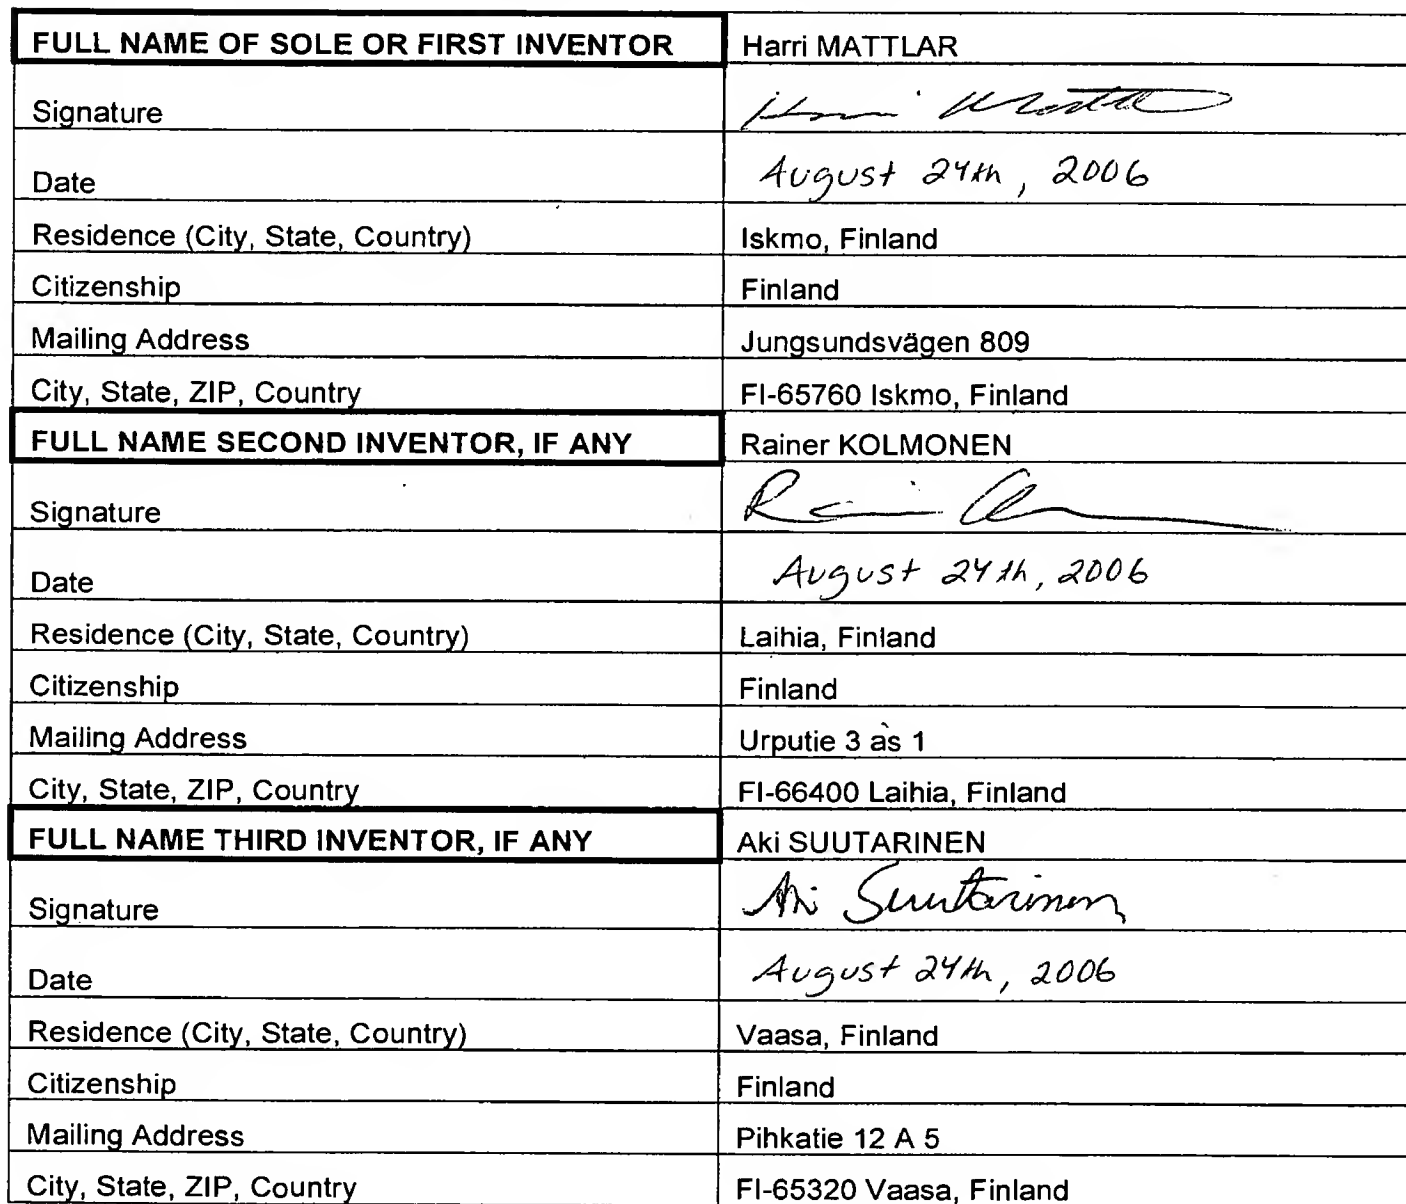 FULL NAME OF SOLE OR FIRST INVENTOR Harri MATTLAR
Signature
Date August 24th, 2006
Residence (City, State, Country) Iskmo, Finland
Citizenship Finland
Mailing Address Jungsundsvägen 809
City, State, ZIP, Country FI-65760 Iskmo, Finland
FULL NAME SECOND INVENTOR, IF ANY Rainer KOLMONEN
Signature
Date August 24th, 2006
Residence (City, State, Country) Laihia, Finland
Citizenship Finland
Mailing Address Urputie 3 as 1
City, State, ZIP, Country FI-66400 Laihia, Finland
FULL NAME THIRD INVENTOR, IF ANY Aki SUUTARINEN
Signature Aki Suutarinen
Date August 24th, 2006
Residence (City, State, Country) Vaasa, Finland
Citizenship Finland
Mailing Address Pihkatie 12 A 5
City, State, ZIP, Country FI-65320 Vaasa, Finland